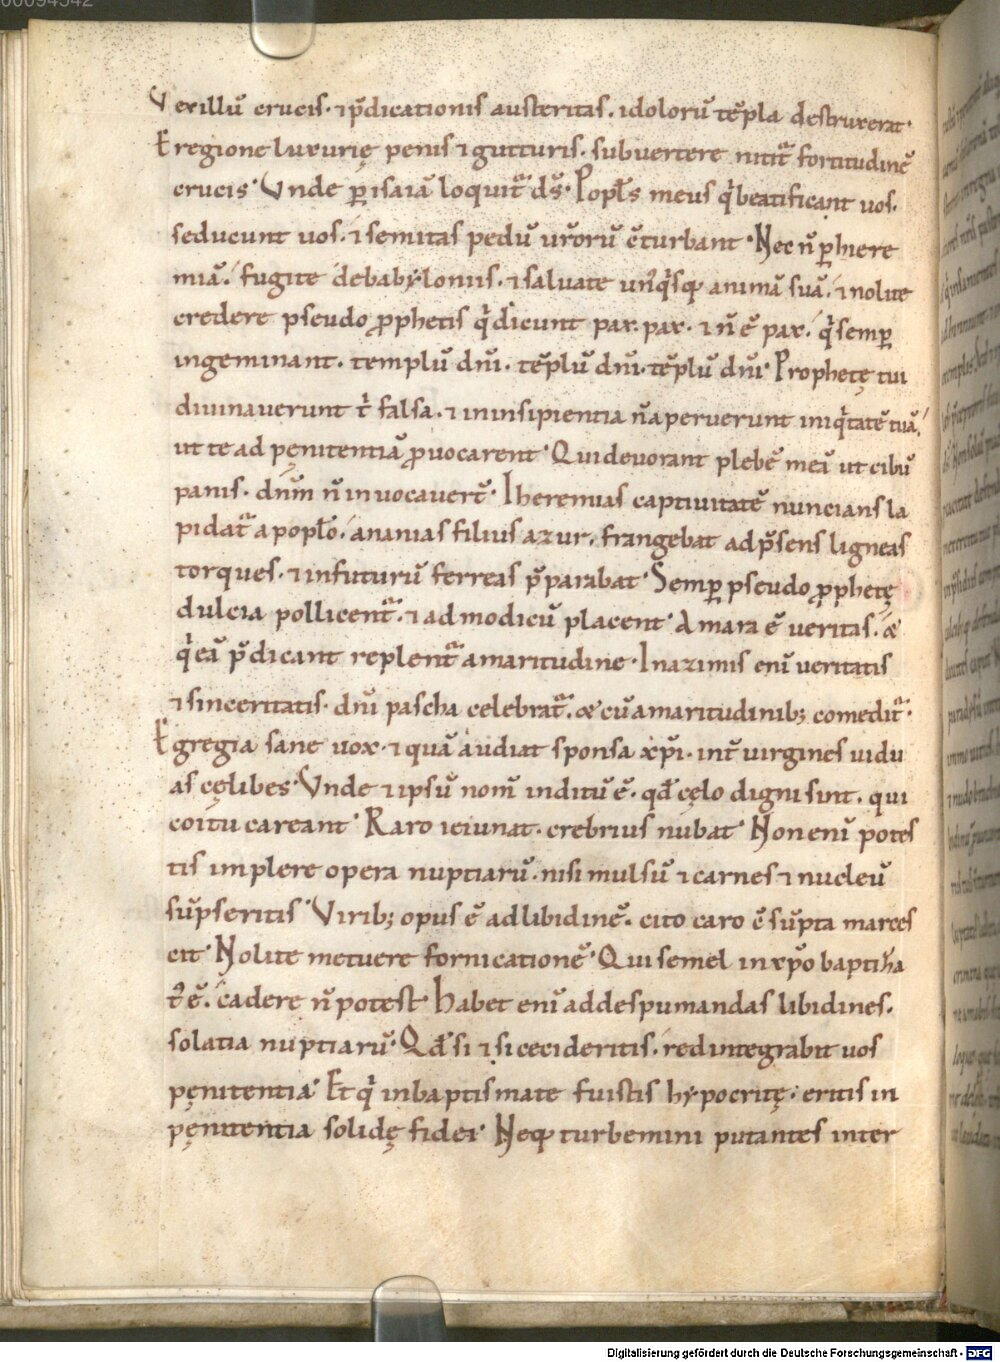 00094542
Vexillū crucis· ⁊p̄dicationis austeritas. idolorū tēpla destruxerat·
E regione luxurię penis ⁊ gutturis. subuertere nitit᷑ fortitudinē
crucis· Vnde ꝑ isaiā loquit᷑ dn̄s· Popl̄s meus q̇ beatificant uos.
seducunt uos. ⁊ semitas pedū ur̄orū c̄turbant· Nec n̄ ꝑ hiere
miā. fugite de babẏloniis. ⁊ saluate unꝰq̇sq; animā suā. ⁊ nolite
credere pseudo ꝓphetis q̇ dicunt pax. pax. ⁊ n̄ ē pax. q̇ semꝑ
ingeminant. templū dn̄i. tēplū dn̄i. tēplū dn̄i· Prophetę tui
diuinauerunt t̄ falsa. ⁊ in insipientia n̄ aperuerunt iniq̇tatē tuā.
ut te ad pęnitentiā ꝓuocarent· Qui deuorant plebē meā ut cibū
panis. dn̄m n̄ inuocauer̄t· Iheremias captiuitatē nuncians la
pidat᷑ a popl̄o. ananias filius azur. frangebat ad p̄sens ligneas
torques. ⁊ in futurū ferreas p̄parabat· Semꝑ pseudo ꝓphetę
dulcia pollicent᷑. ⁊ ad modicū placent· Amara ē ueritas. &
q̇ eā p̄dicant replent᷑ amaritudine· In azimis enī ueritatis
⁊ sinceritatis. dn̄i pascha celebrat᷑. & cū amaritudinib; comedit᷑·
Egregia sane uox. ⁊ quā audiat sponsa xp̄i. int̄ uirgines uidu
as cęlibes· Vnde ⁊ ipsū nom̄ inditū ē. qđ cęlo digni sint. qui
coitu careant· Raro ieiunat. crebrius nubat· Non enī potes
tis implere opera nuptiarū. nisi mulsū ⁊ carnes ⁊ nucleū
sūpseritis· Virib; opus ē ad libidinē. cito caro c̄sūpta marces
cit· Nolite metuere fornicationē· Qui semel in xp̄o baptiza
tꝰ ē. cadere n̄ potest· Habet enī ad despumandas libidines.
solatia nuptiarū· Qđ si ⁊ si cecideritis. redintegrabit uos
pęnitentia· Et q̇ in baptismate fuistis hẏpocritę. eritis in
pęnitentia solidę fidei· Neq; turbemini putantes inter
Digitalisierung gefördert durch die Deutsche Forschungsgemeinschaft - DFG